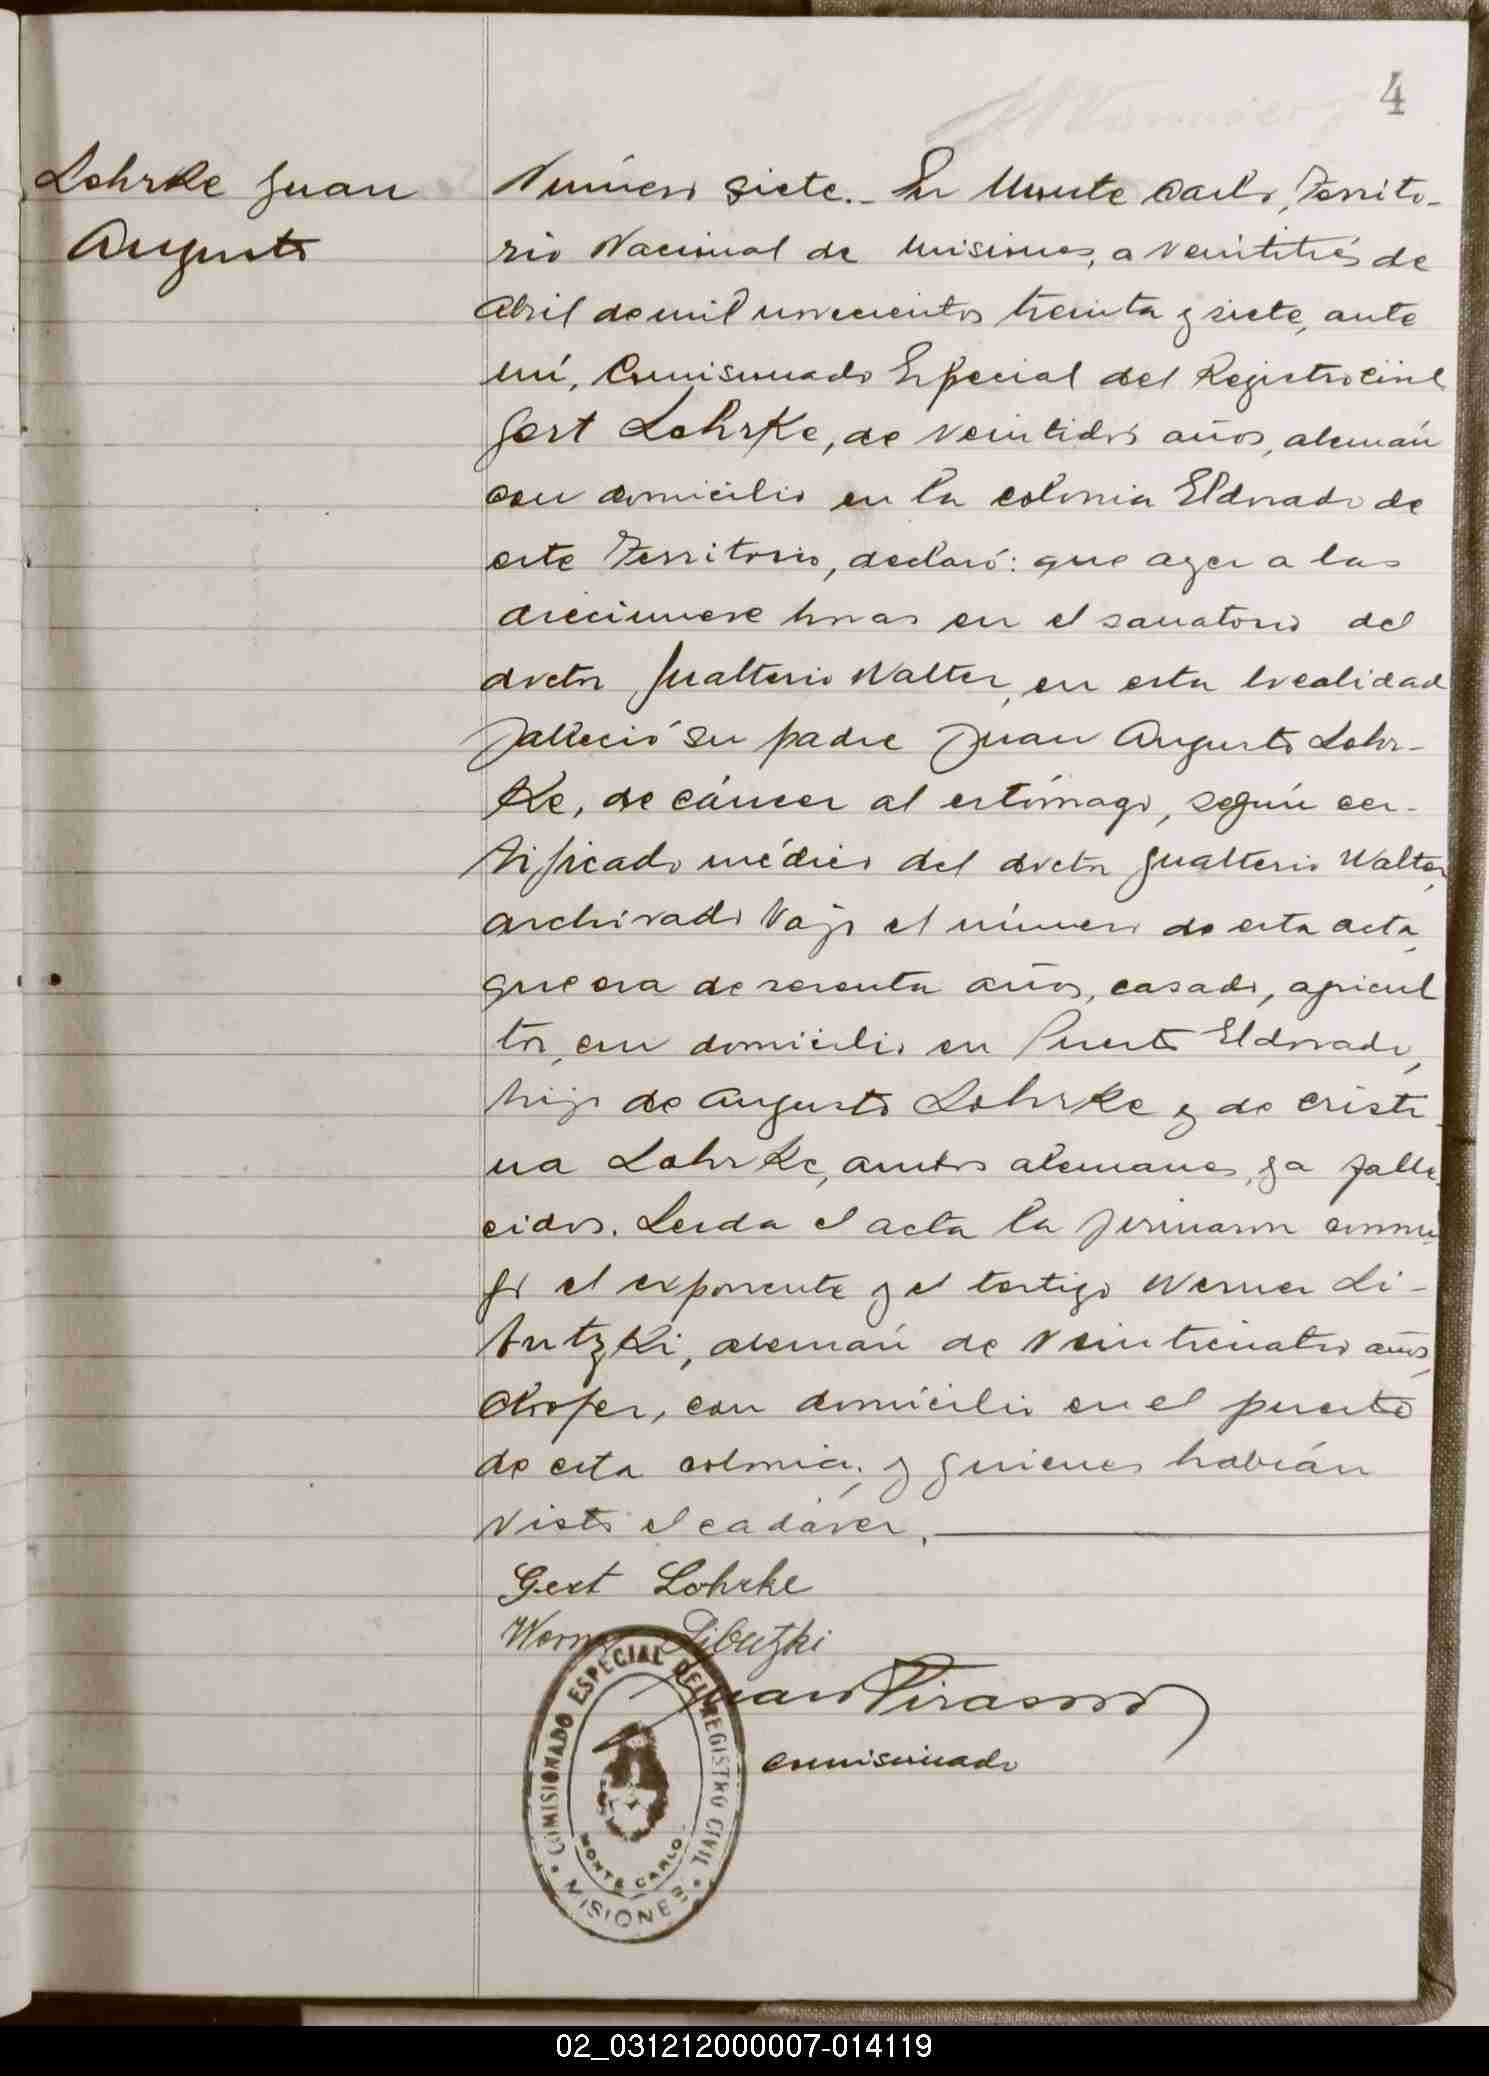 4
Lohrke Juan
Augusto
Número siete.- En Monte Carlo, Territo-
rio Nacional de Misiones, a veintitrés de
Abril de mil novecientos treinta y siete, ante
mí, Comisionado Especial del Registro Civil
Gert Lohrke, de veintidós años, alemán
con domicilio en la colonia Eldorado de
este Territorio, declaró: que ayer a las
diecinueve horas en el sanatorio del
doctor Gualterio Walter, en esta localidad
falleció su padre Juan Augusto Lohr-
ke, de cáncer al estómago, según cer-
tificado médico del doctor Gualterio Walter,
archivado bajo el número de esta acta,
que era de sesenta años, casado, agricul
tor, con domicilio en Puerto Eldorado,
hijo de Augusto Lohrke y de Cristi
na Lohrke, ambos alemanes, ya falle-
cidos. Leída el acta la firmaron conmi-
go el exponente y el testigo Werner Li-
butzki, alemán de veinticuatro años,
chofer, con domicilio en el puerto
de esta colonia; y quienes habían
visto el cadáver.
Gert Lohrke
Werner Libutzki
Juan Pirasoso
comisionado
COMISIONADO ESPECIAL DEL REGISTRO CIVIL
MONTE CARLO
MISIONES
02_031212000007-014119